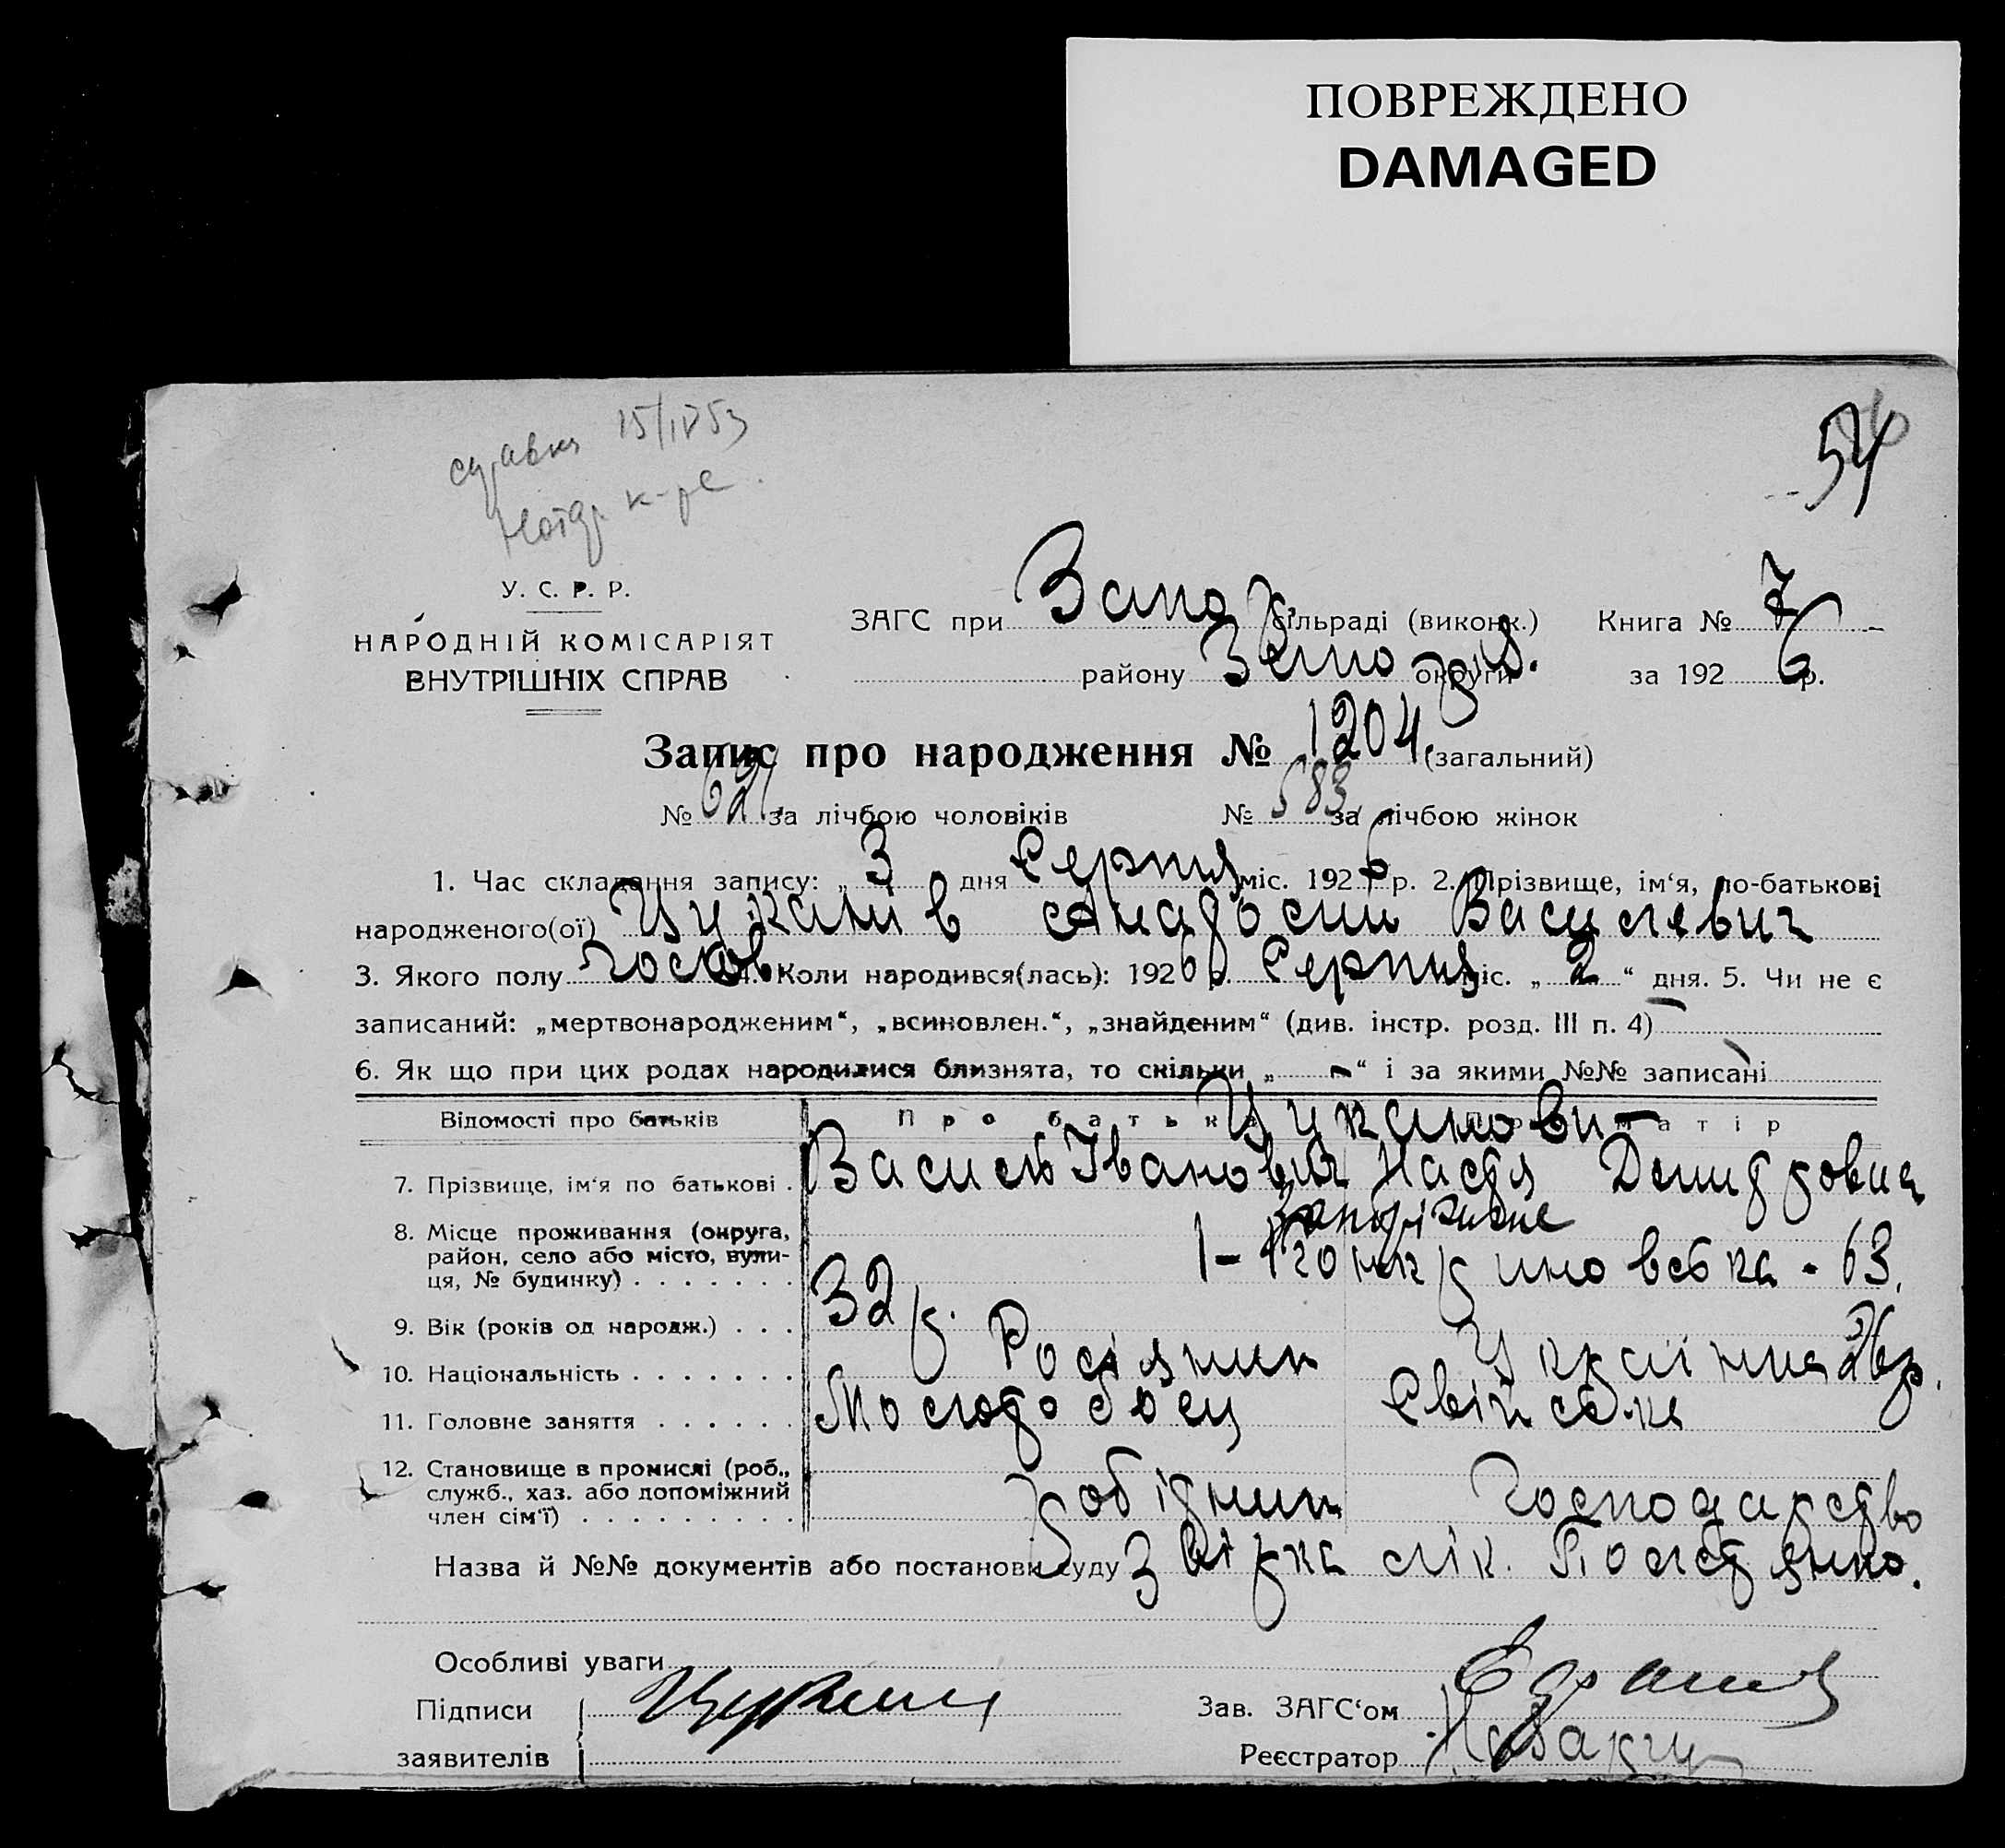 ПОВРЕЖДЕНО
DAMAGED
15/IV 53
54
У. С. Р. Р.
НАРОДНІЙ КОМІСАРІЯТ
ВНУТРІШНІХ СПРАВ
ЗАГС при Запор. сільраді (виконк.) Книга № 7
району Запоріз. округи за 1926 р.
Запис про народження № 1204 (загальний)
№ 621 за лічбою чоловіків № 583 за лічбою жінок
1. Час складання запису: „3“ дня Серпня міс. 1926 р. 2. Прізвище, ім‘я, по-батькові
народженого(ої) Цуканів Анатолій Василевич
3. Якого полу 4. Коли народився(лась): 1926 р. Серпня міс. „2“ дня. 5. Чи не є
записаний: „мертвонародженим“, „всиновлен.“, „знайденим“ (див. інстр. розд. III п. 4) —
6. Як що при цих родах народилися близнята, то скільки „—“ і за якими №№ записані —
Відомості про батьків Про батька Про матір
Цуканови
7. Прізвище, ім‘я по батькові . Василь Іванович Настя Демидовна
8. Місце проживання (округа, район, село або місто, вулиця, № будинку) . . . . . . . Запоріжжє
- 63.
9. Вік (років од народж.) . . . 32 р. 26 р.
10. Національність . . . . . . . Росіянин Українка
11. Головне заняття . . . . . . Молотобоец Свійське
12. Становище в промислі (роб., служб., хаз. або допоміжний член сім‘ї) . . . . . . . . . робітник господарство
Назва й №№ документів або постанови суду Звірка лік.
Особливі уваги
Підписи
заявителів
Зав. ЗАГС‘ом
Реєстратор